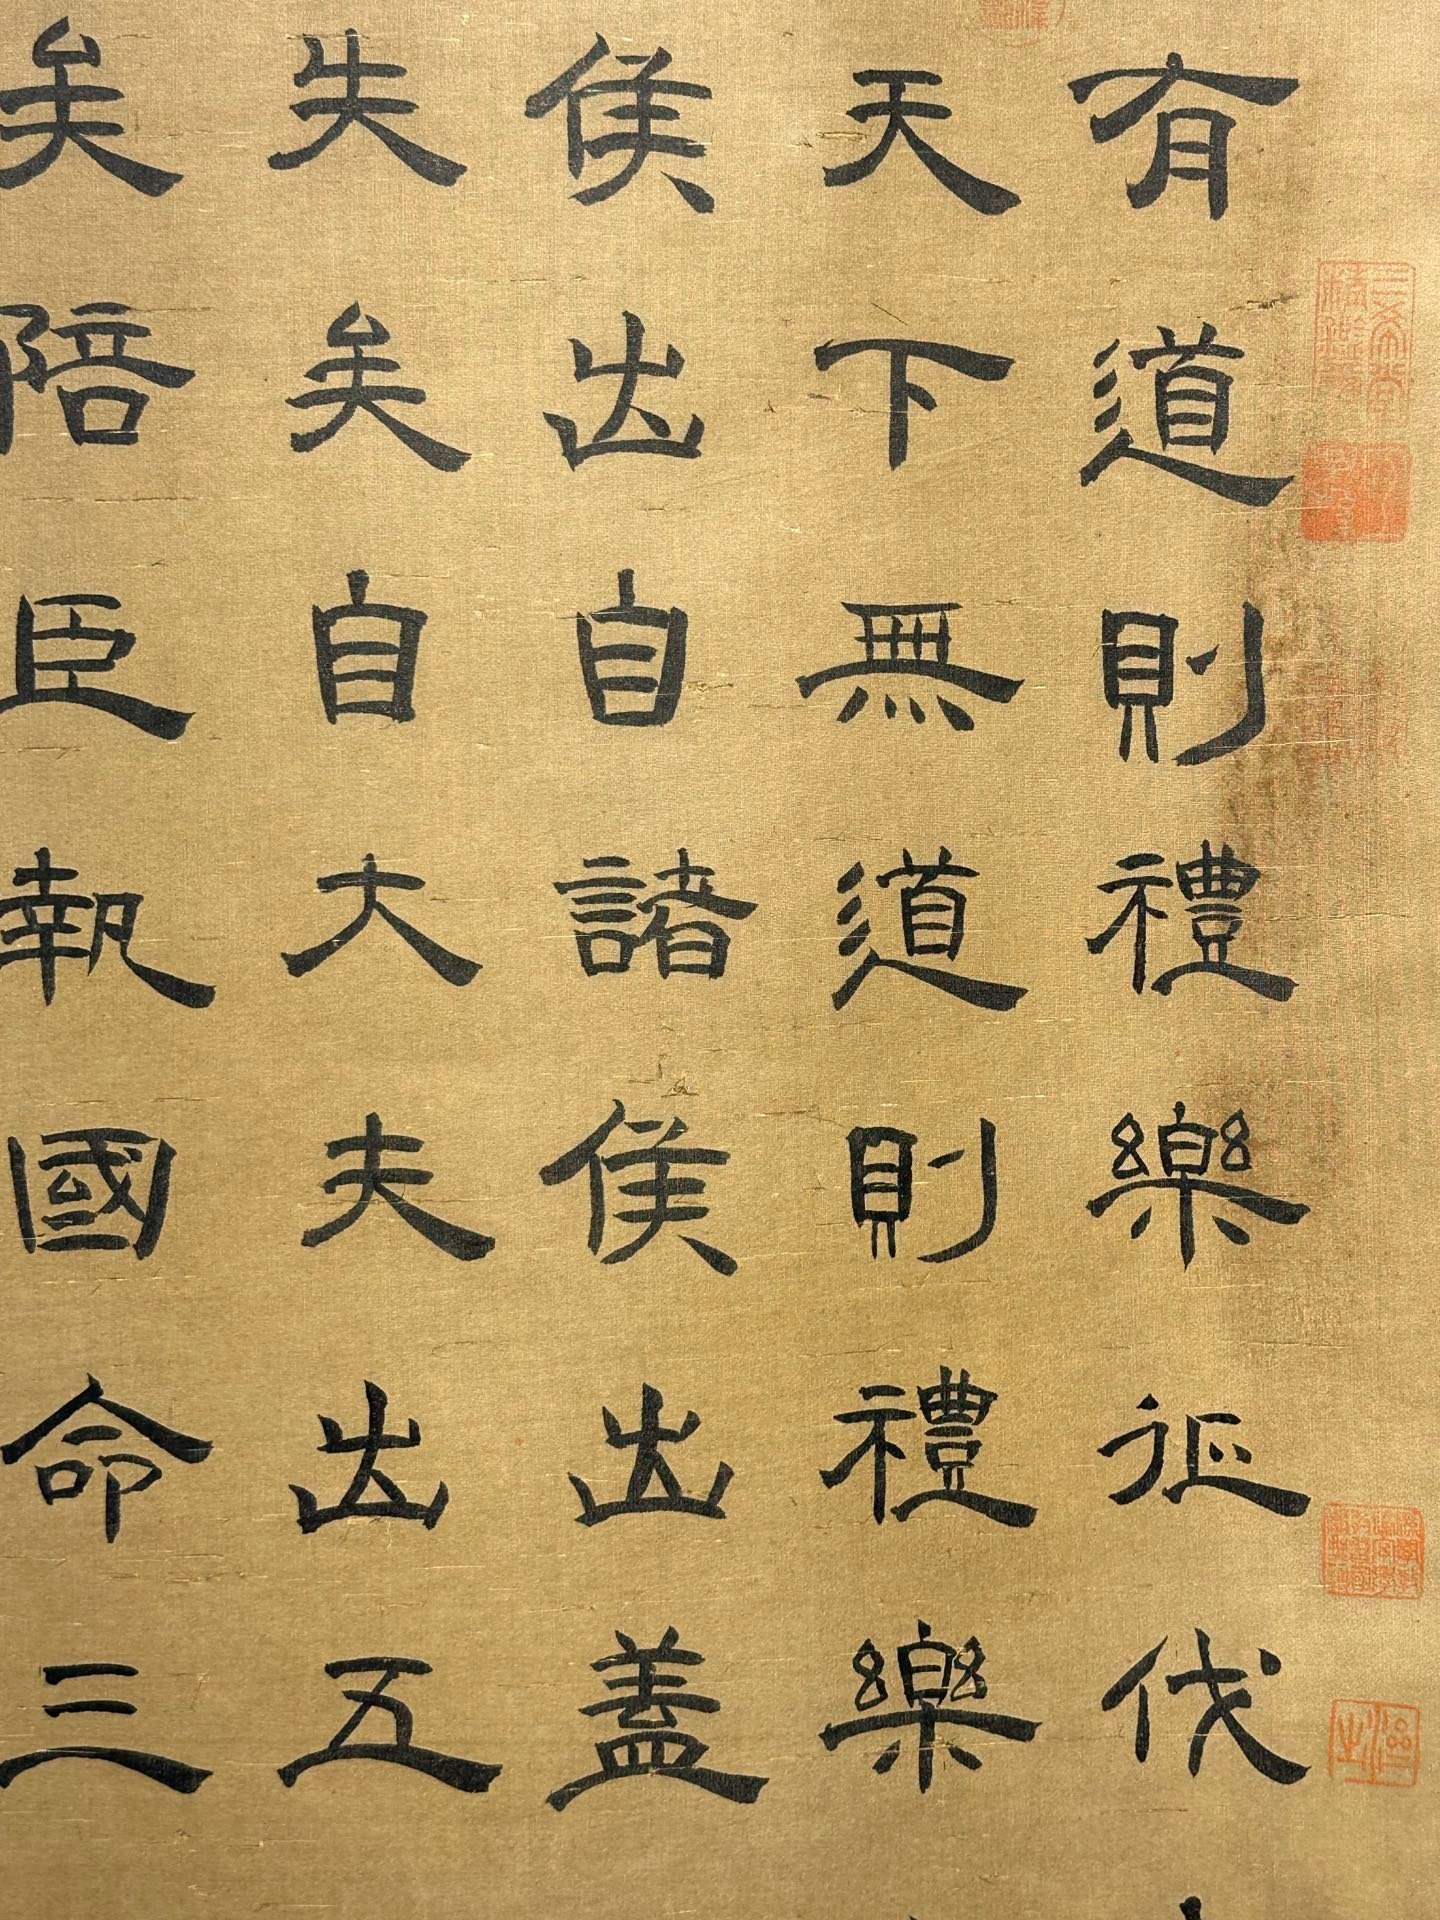 有道則禮樂征伐
天下無道則禮樂
侯出自諸侯出蓋
失矣自大夫出五
矣陪臣執國命三
三希堂精鑑璽